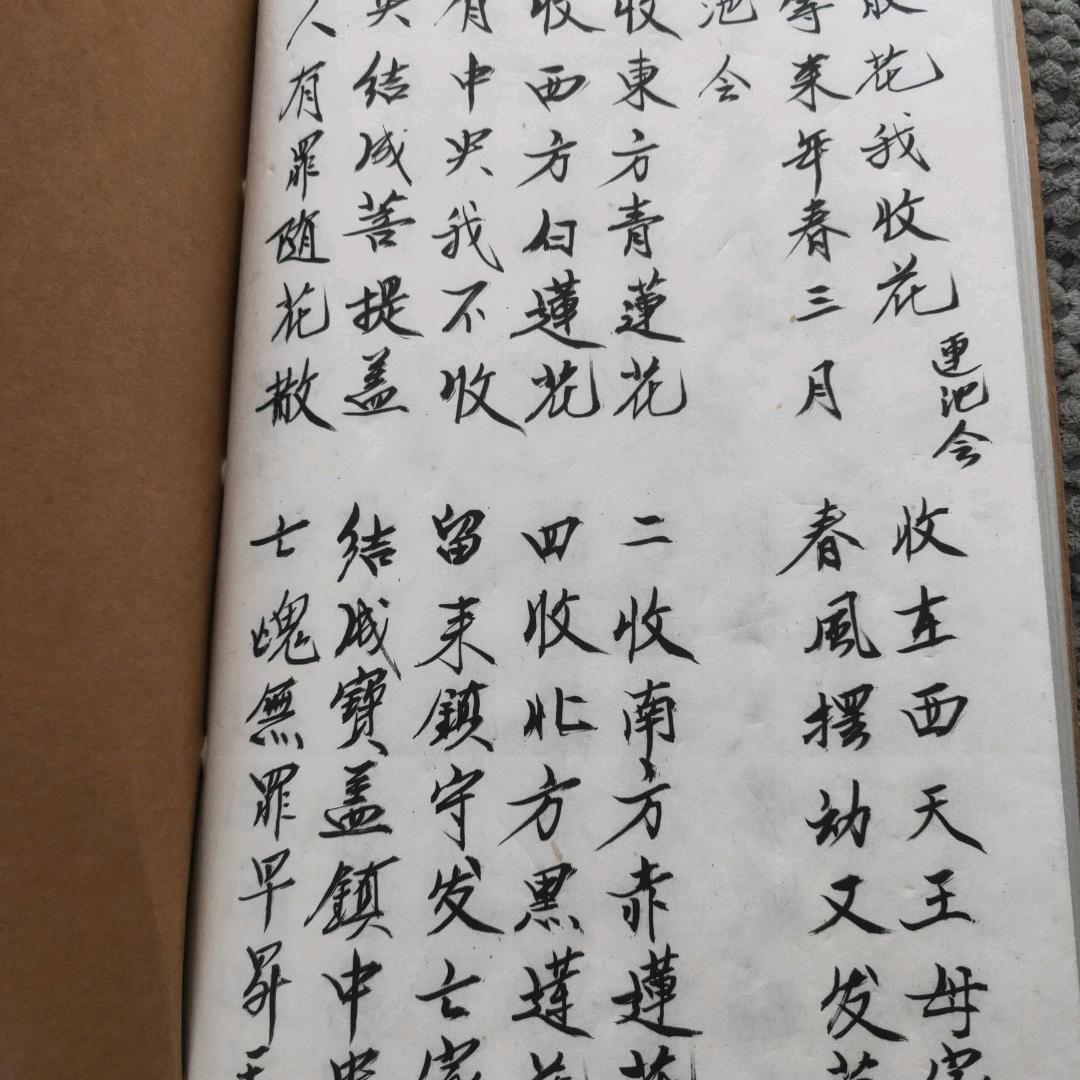 散花我收花
連池会
收在西天王母宮
等来年春三月
春風摆动又发花
池会
收東方青蓮花
二收南方赤蓮花
收西方白蓮花
四收北方黑蓮花
有中央我不收
留来鎮守发亡家
央结成菩提盖
结成寶盖鎮中央
人有罪随花散
亡魂無罪早昇天